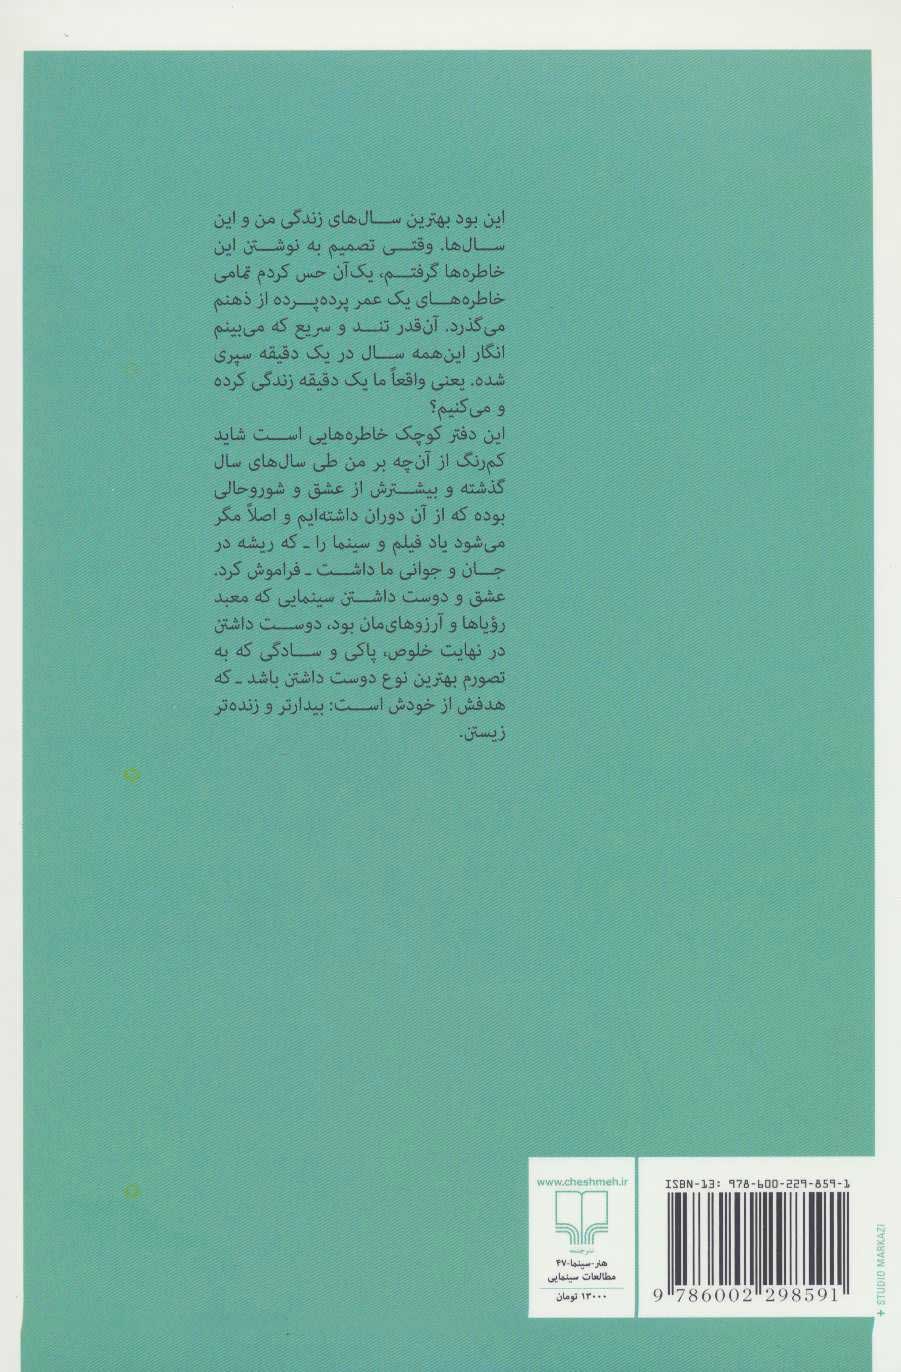 این بود بهترین سال‌های زندگی من و این
سال‌ها. وقتی تصمیم به نوشتن این
خاطره‌ها گرفتم، یک‌آن حس کردم تمامی
خاطره‌های یک عمر پرده‌پرده از ذهنم
می‌گذرد. آن‌قدر تند و سریع که می‌بینم
انگار این‌همه سال در یک دقیقه سپری
شده. یعنی واقعاً ما یک دقیقه زندگی کرده
و می‌کنیم؟
این دفتر کوچک خاطره‌هایی است شاید
کم‌رنگ از آن‌چه بر من طی سال‌های سال
گذشته و بیشترش از عشق و شوروحالی
بوده که از آن دوران داشته‌ایم و اصلاً مگر
می‌شود یاد فیلم و سینما را ـ که ریشه در
جان و جوانی ما داشت ـ فراموش کرد.
عشق و دوست داشتن سینمایی که معبد
رؤیاها و آرزوهای‌مان بود، دوست داشتن
در نهایت خلوص، پاکی و سادگی که به
تصورم بهترین نوع دوست داشتن باشد ـ که
هدفش از خودش است: بیدارتر و زنده‌تر
زیستن.
ISBN-13: 978-600-229-859-1
9 786002 298591
www.cheshmeh.ir
نشرچشمه
هنر-سینما-۴۷
مطالعات سینمایی
۱۳۰۰۰ تومان
+ STUDIO MARKAZI